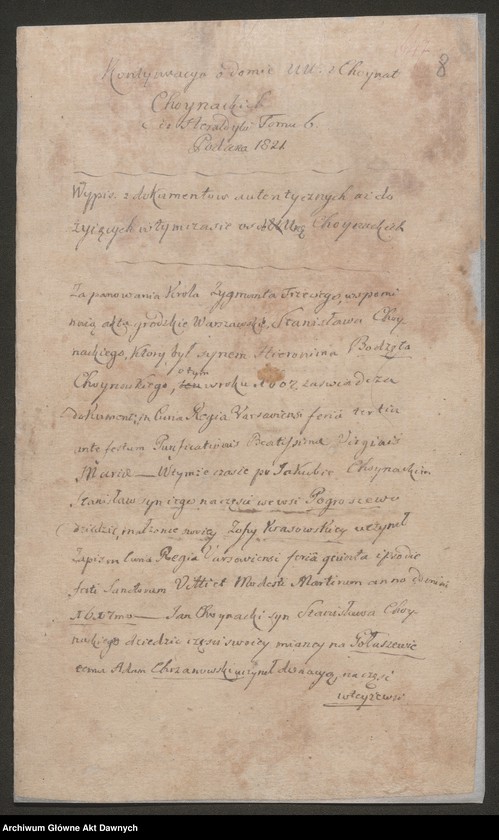 8
Kontynuacya o domie UU: z Choynat
Choynackich
Heraldyki Tomu 6.
Podana 1821
Wypis z dokumentów autentycznych aż do
żyiących w tym czasie Choynackich
Za panowania Króla Zygmunta Trzeciego, wspomi
naią akta grodzkie Warszawskie, Stanisława Choy
nackiego, który był synem Hieronima Bodzęta
Choynackiego, o tym w roku 1607, zaświadcza
dokument, in Curia Regia Varsaviensi feria tertia
ante festum Purificationis Beatissima Virginis
Maria — W tymże czasie po Jakubie Choynackim
Stanisław syn iego na części we wsi Pogroszewo
dziedzic, małżonce swoiey Zofij Krasowskiey uczynił
Zapis in Curia Regia Varsaviensi feria quarta ipso die
festi Sanctorum Viti et Modesti Martirum anno domini
1617mo — Jan Choynacki syn Stanisława Choy
nackiego dziedzic części swoiey mianey na Gołaszewie
Adam Chrzanowski uczynił donacyą, na część
Archiwum Główne Akt Dawnych